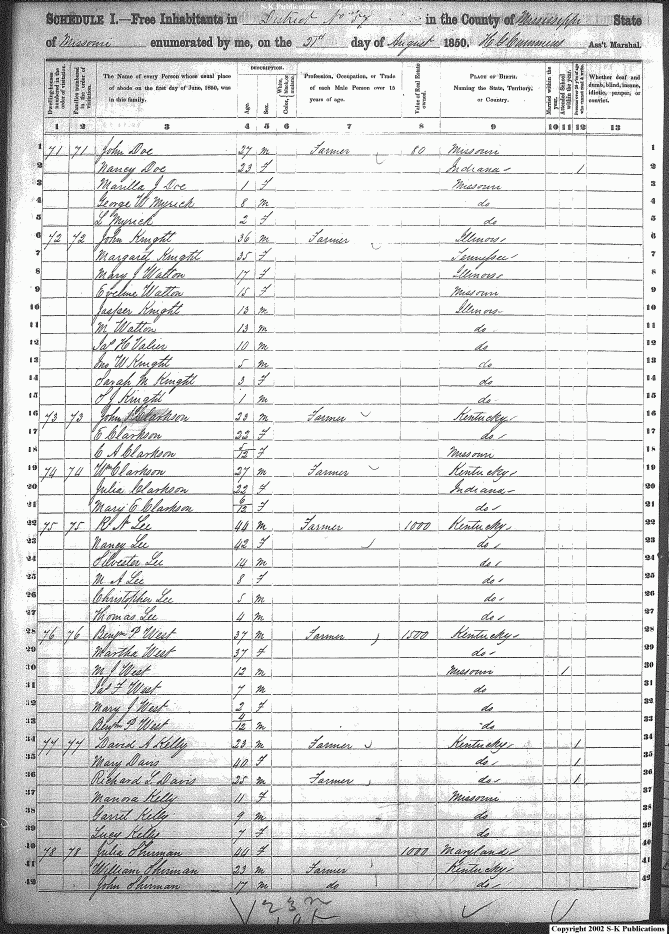 S-K Publications
SCHEDULE I.—Free Inhabitants in District No 57 in the County of Mississippi State
of Missouri enumerated by me, on the 21st day of August 1850. Ass't Marshal.
Dwelling-houses numbered in the order of visitation.
Families numbered in the order of visitation.
The Name of every Person whose usual place of abode on the first day of June, 1850, was in this family.
DESCRIPTION.
Age.
Sex.
Color, White, black, or mulatto.
Profession, Occupation, or Trade of each Male Person over 15 years of age.
Value of Real Estate owned.
PLACE OF BIRTH. Naming the State, Territory, or Country.
Married within the year.
Attended School within the year.
Whether deaf and dumb, blind, insane, idiotic, pauper, or convict.
1 2 3 4 5 6 7 8 9 10 11 12 13
1 71 71 John Doe 27 m Farmer 80 Missouri 1
2 Nancy Doe 23 F Indiana 1 2
3 Marilla J Doe 1 F Missouri 3
4 George W Myrick 8 m do 4
5 L Myrick 2 F do 5
6 72 72 John Knight 36 m Farmer Illinois 6
7 Margaret Knight 35 F Tennessee 7
8 Mary J Watton 17 F Illinois 8
9 Eveline Watton 15 F Missouri 9
10 Jasper Knight 13 m Illinois 10
11 M Watton 13 m do 11
12 Jas H Valier 10 m do 12
13 Jno W Knight 5 m do 13
14 Sarah M Knight 3 F do 14
15 S J Knight 1 m do 15
16 73 73 John Clarkson 23 m Farmer Kentucky 16
17 E Clarkson 22 F do 17
18 C A Clarkson /12 F Missouri 18
19 74 74 Wm Clarkson 27 m Farmer Kentucky 19
20 Julia Clarkson 22 F Indiana 20
21 Mary E Clarkson 6/12 F do 21
22 75 75 R N Lee 44 m Farmer 1000 Kentucky 22
23 Nancy Lee 42 F do 23
24 Silvester Lee 14 m do 24
25 M A Lee 8 F do 25
26 Christopher Lee 5 m do 26
27 Thomas Lee 4 m do 27
28 76 76 Benjm P West 37 m Farmer 1500 Kentucky 28
29 Martha West 37 F do 29
30 M J West 12 m Missouri 1 30
31 Jas F West 7 m do 31
32 Mary J West 2 F do 32
33 Benjm P West /12 m do 33
34 77 77 David A Kelly 23 m Farmer Kentucky 1 34
35 Mary Davis 40 F do 1 35
36 Richard L Davis 25 m Farmer do 1 36
37 Manora Kelly 11 F Missouri 37
38 Garrit Kelly 9 m do 38
39 Lucy Kelly 7 F do 39
40 78 78 Julia Shirman 44 F 1000 Maryland 40
41 William Shirman 23 m Farmer Kentucky 41
42 John Shirman 17 m do do 42
Copyright 2002 S-K Publications